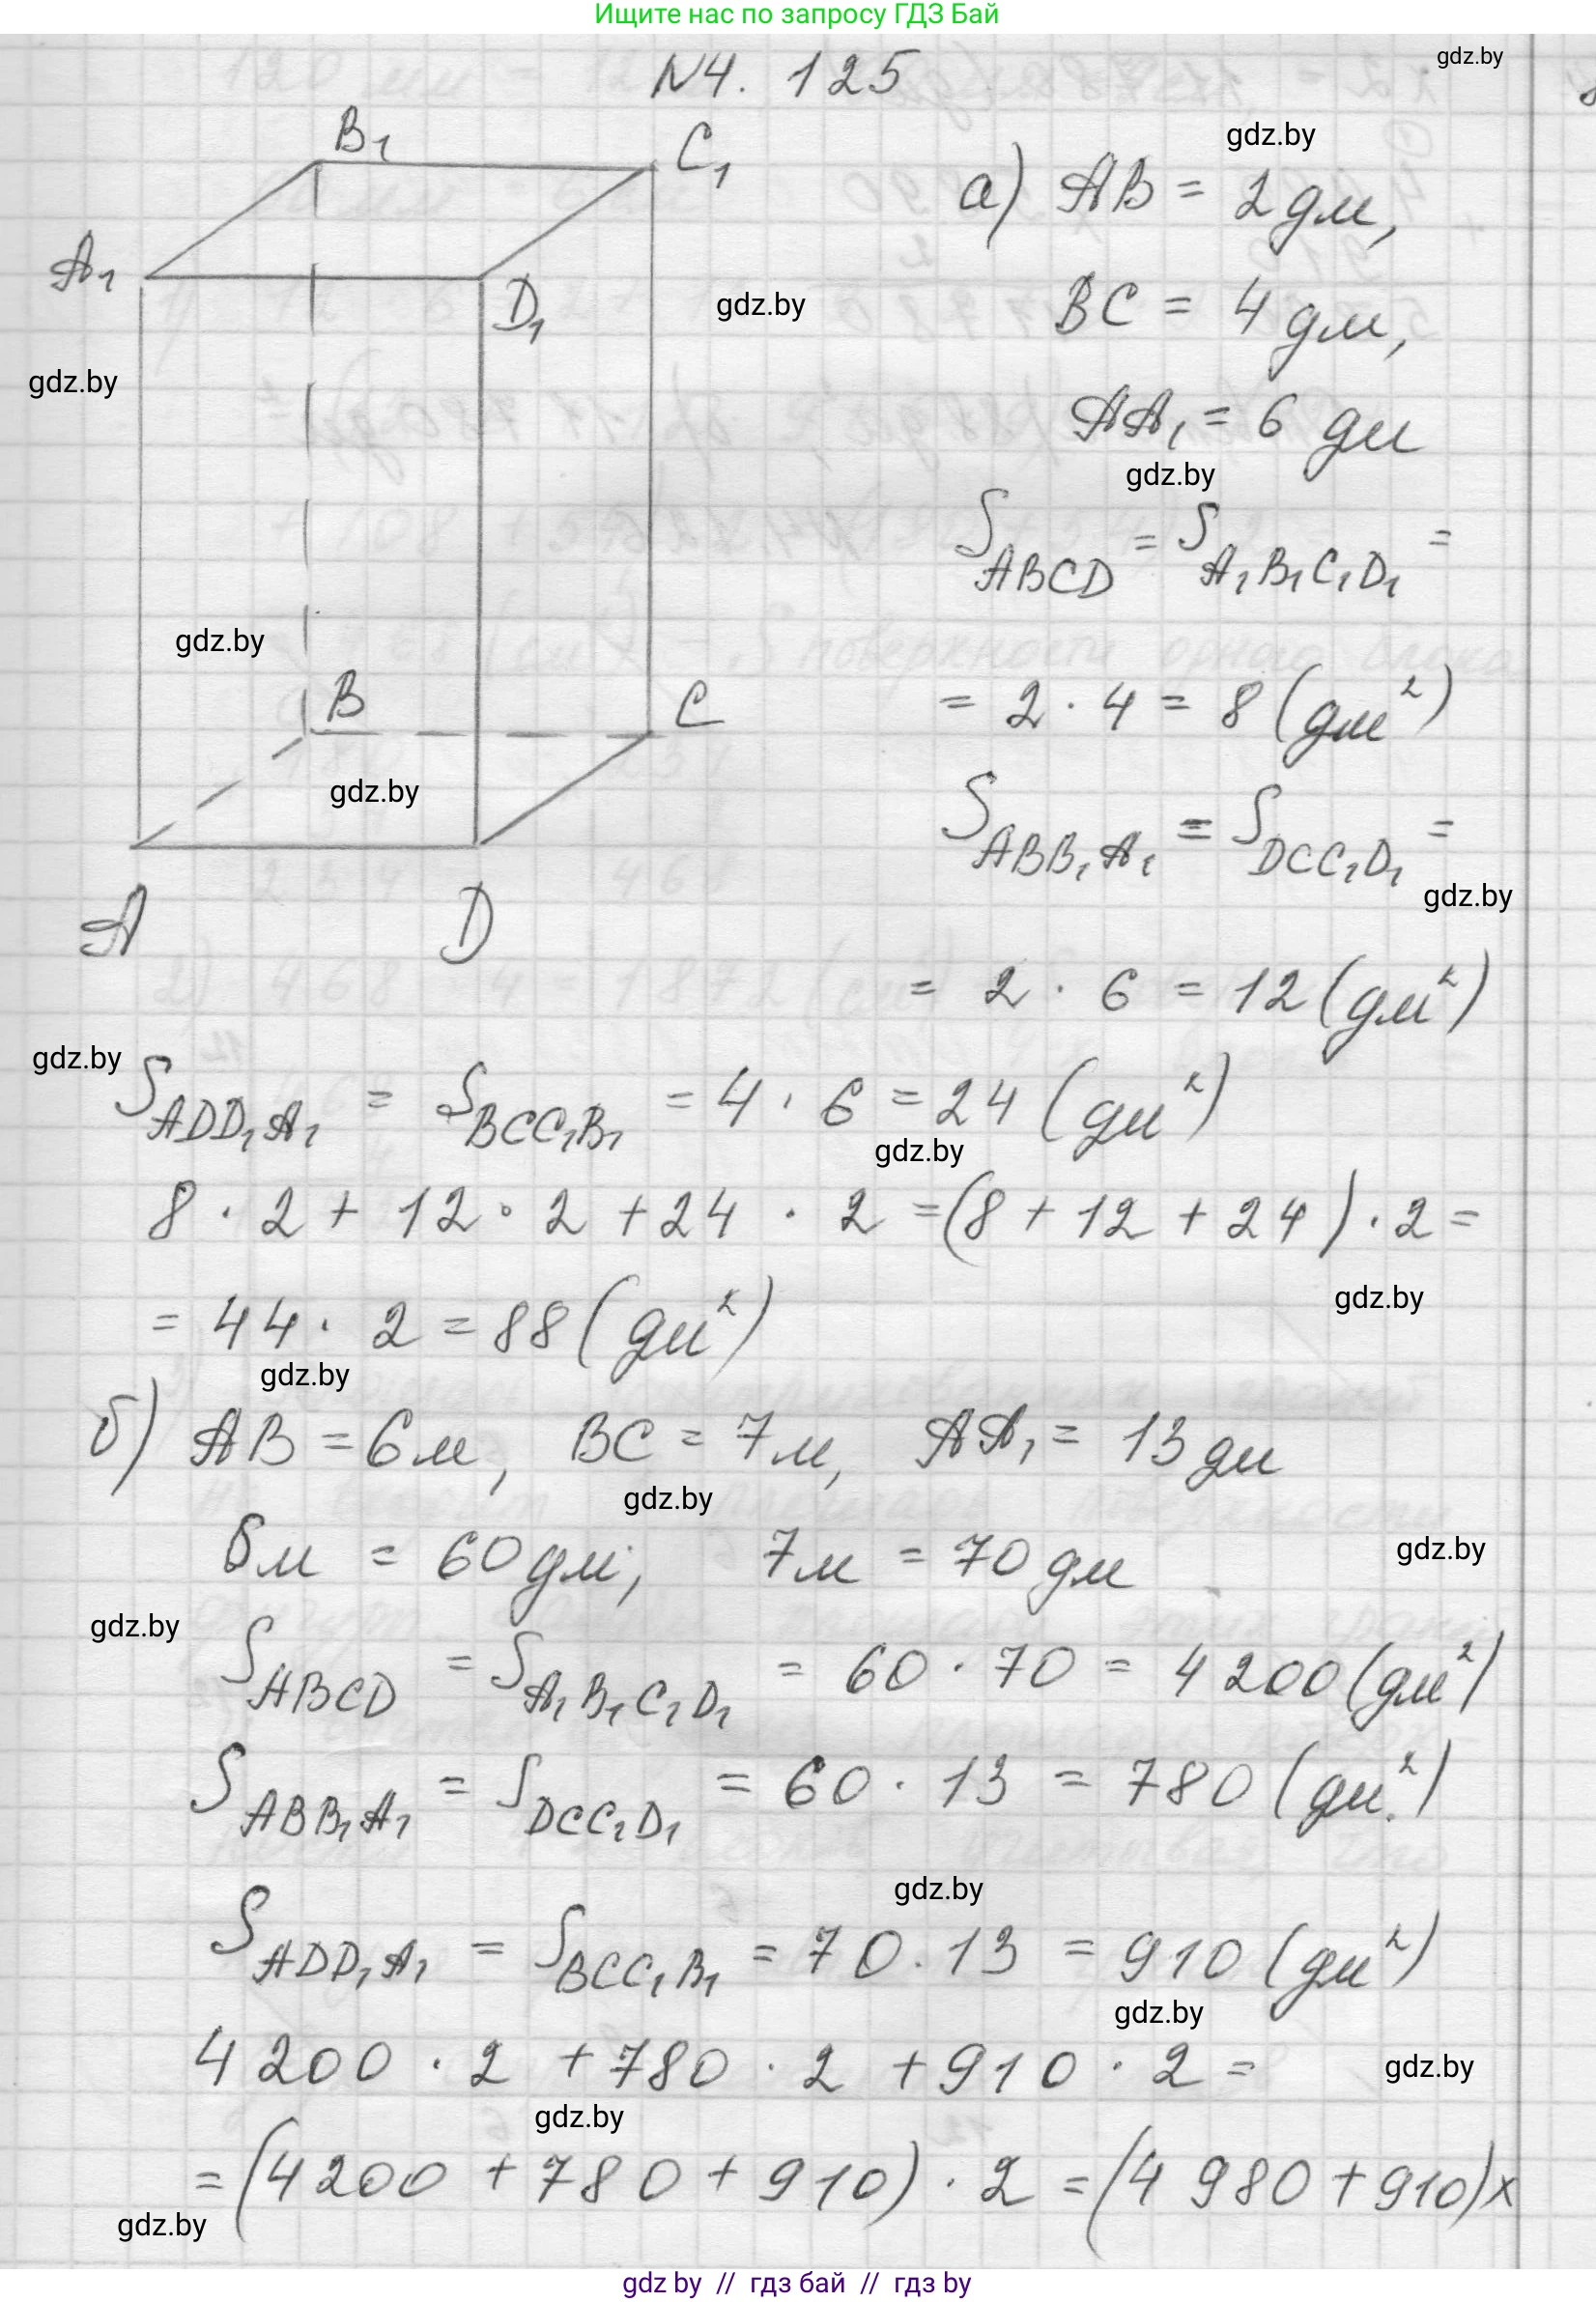 Ищите нас по запросу ГДЗ Бай
gdz.by
N4. 125
B₁
C₁
gdz.by
а) AB = 2 дм,
A₁
D₁
gdz.by
BC = 4 дм,
gdz.by
AA₁ = 6 дм
gdz.by
S ABCD = S A₁B₁C₁D₁ =
gdz.by
B
C
= 2 · 4 = 8 (дм²)
gdz.by
S ABB₁A₁ = S DCC₁D₁ =
gdz.by
A
D
= 2 · 6 = 12 (дм²)
gdz.by
S ADD₁A₁ = S BCC₁B₁ = 4 · 6 = 24 (дм²)
gdz.by
8 · 2 + 12 · 2 + 24 · 2 = (8 + 12 + 24) · 2 =
gdz.by
= 44 · 2 = 88 (дм²)
gdz.by
б) AB = 6 м, BC = 7 м, AA₁ = 13 дм
gdz.by
6 м = 60 дм, 7 м = 70 дм
gdz.by
gdz.by
S ABCD = S A₁B₁C₁D₁ = 60 · 70 = 4 200 (дм²)
S ABB₁A₁ = S DCC₁D₁ = 60 · 13 = 780 (дм²)
gdz.by
S ADD₁A₁ = S BCC₁B₁ = 70 · 13 = 910 (дм²)
gdz.by
4 200 · 2 + 780 · 2 + 910 · 2 =
gdz.by
gdz.by
= (4 200 + 780 + 910) · 2 = (4 980 + 910) х
gdz.by
gdz by // гдз бай // гдз by